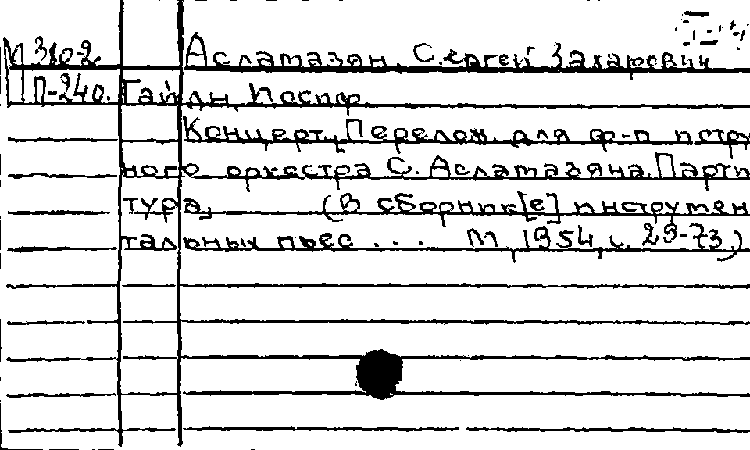 М 3102 Аслamазян, Сергей Захарович
П-240. Гайдн, Иосиф.
Концерт. Перелож. для ф-п и стру
ного оркестра С. Асламазяна. Парти
тура, (В сборник[е] инструмен
тальных пьес... М, 1954, с. 29-73)